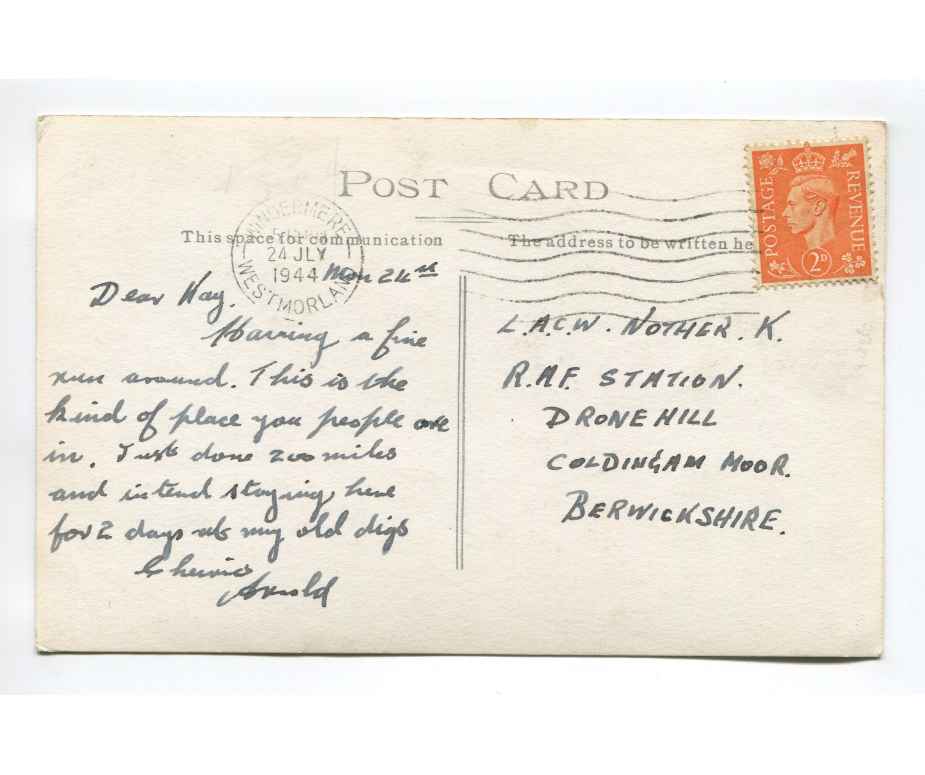 POST CARD
This space for communication
The address to be written he
WINDERMERE
24 JLY
1944
WESTMORLAND
POSTAGE
REVENUE
2D
Mon 24th
Dear Kay,
Having a fine
run around. This is the
kind of place you people are
in. Just done 200 miles
and intend staying here
for 2 days at my old digs
Cheerio
Arnold
L.A.C.W. NOTHER. K.
R.A.F. STATION.
DRONEHILL
COLDINGAM MOOR.
BERWICKSHIRE.